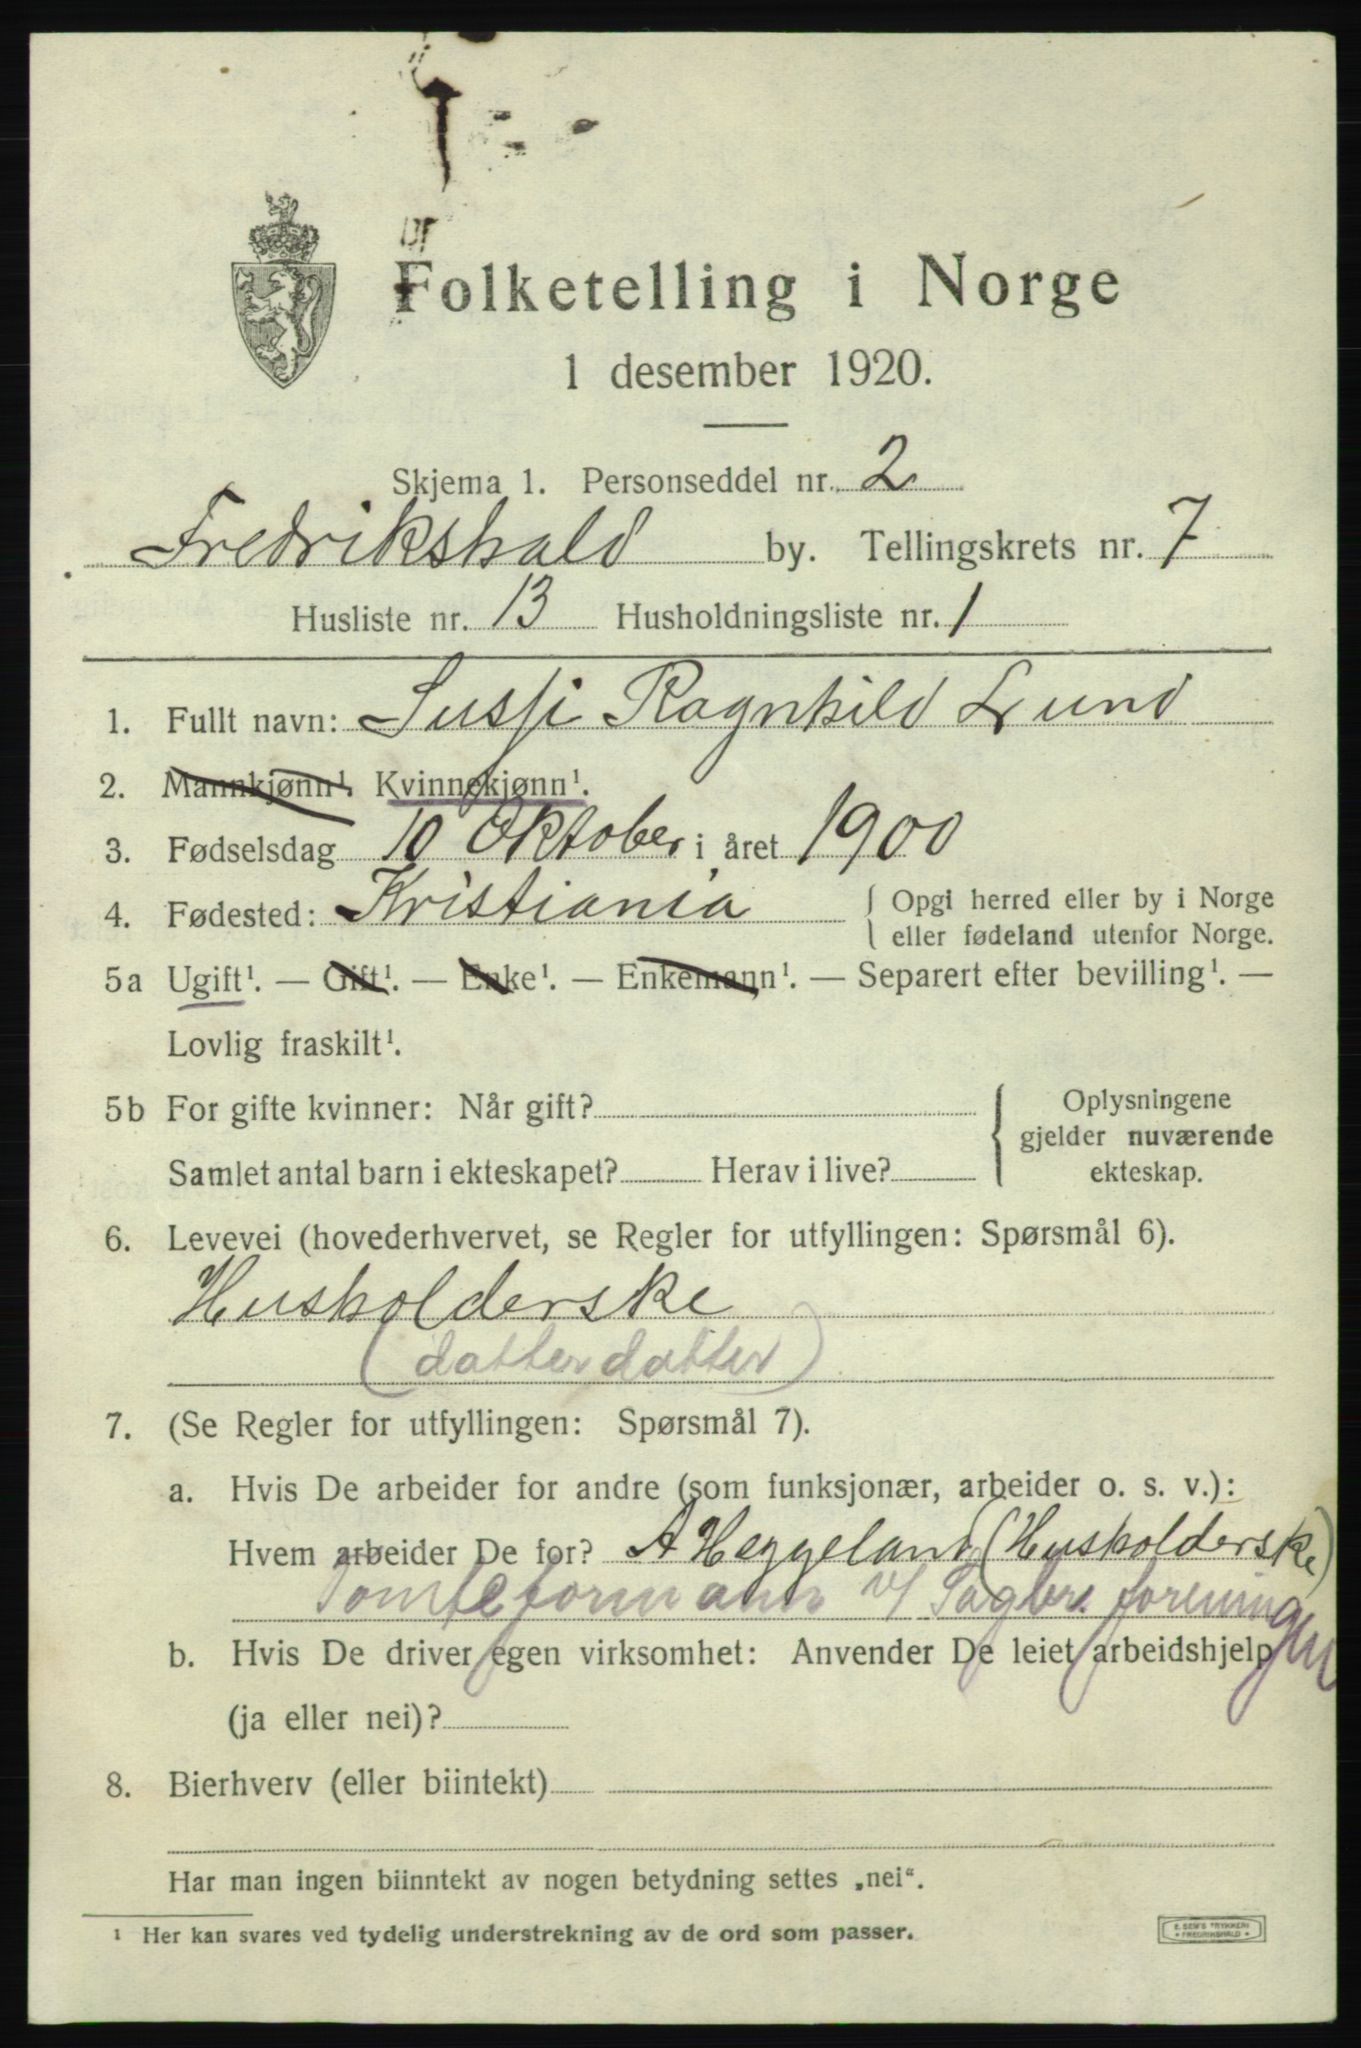 Folketelling i Norge
1 desember 1920.
Skjema 1. Personseddel nr. 2
Fredrikshald by. Tellingskrets nr. 7
Husliste nr. 13 Husholdningsliste nr. 1
1. Fullt navn: Sussi Ragnhild Lund
2. Mannkjønn¹. Kvinnekjønn¹.
3. Fødselsdag 10 Oktober i året 1900
4. Fødested: Kristiania { Opgi herred eller by i Norge
eller fødeland utenfor Norge.
5a Ugift¹. — Gift¹. — Enke¹. — Enkemann¹. — Separert efter bevilling¹. —
Lovlig fraskilt¹.
5b For gifte kvinner: Når gift? { Oplysningene
gjelder nuværende
Samlet antal barn i ekteskapet? Herav i live? ekteskap.
6. Levevei (hovederhvervet, se Regler for utfyllingen: Spørsmål 6).
Husholderske
(datterdatter)
7. (Se Regler for utfyllingen: Spørsmål 7).
a. Hvis De arbeider for andre (som funksjonær, arbeider o. s. v.):
Hvem arbeider De for? A Heggeland (Husholderske)
Tomteformann v/ Sagbr. foreningen
b. Hvis De driver egen virksomhet: Anvender De leiet arbeidshjelp
(ja eller nei)?
8. Bierhverv (eller biintekt)
Har man ingen biinntekt av nogen betydning settes „nei“.
¹ Her kan svares ved tydelig understrekning av de ord som passer.
E. SEM'S TRYKKERI
FREDRIKSHALD